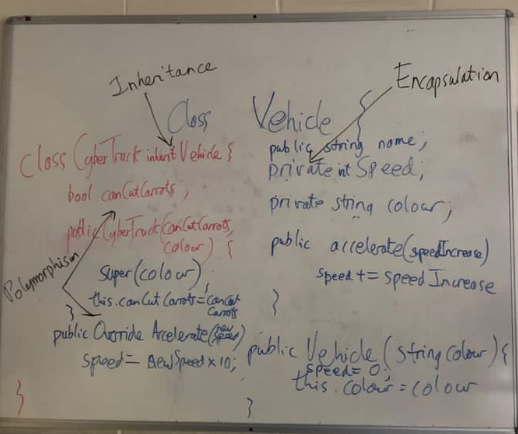 Inheritance
Encapsulation
Polymorphism
class CyberTruck inherit Vehicle {
bool canCutCarrots;
public CyberTruck(canCutCarrots,
colour) {
super(colour);
this.canCutCarrots = canCut
Carrots
}
public Override Accelerate(new
speed)
speed = newSpeed x 10;
}
Class Vehicle {
public string name;
private int Speed;
private string colour;
public accelerate(speedIncrease)
speed += speedIncrease
}
public Vehicle (string colour) {
speed = 0;
this.colour = colour
}